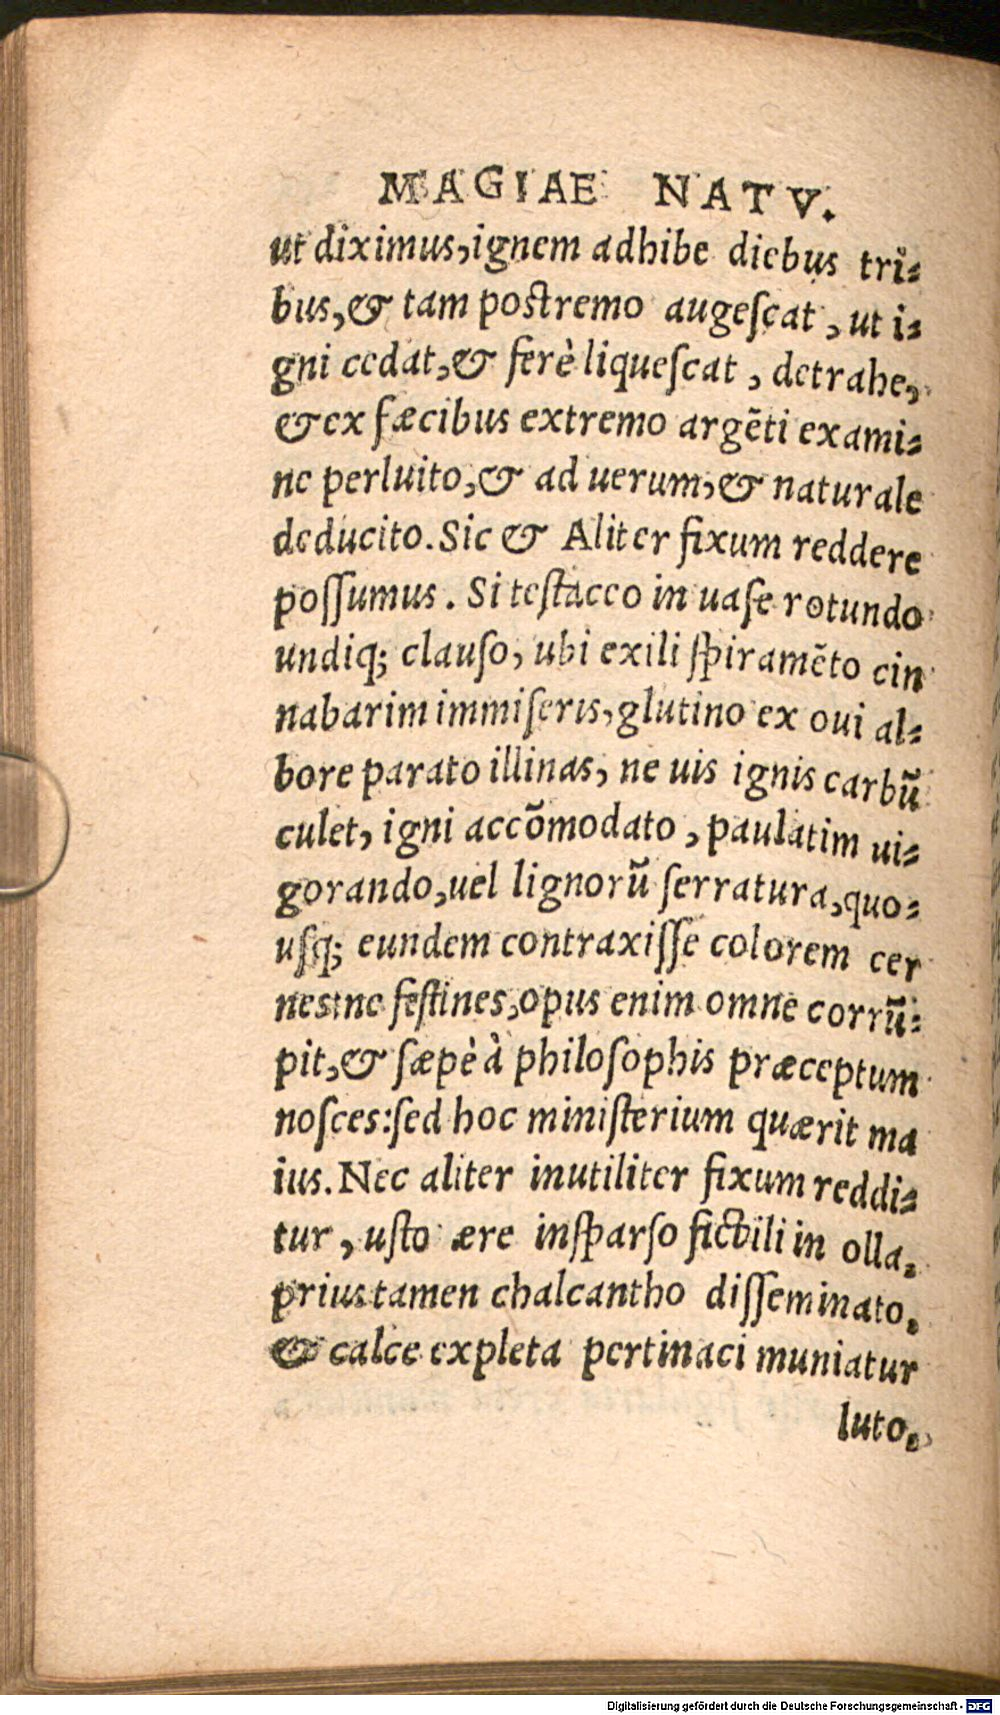 MAGIAE NATV.
ut diximus, ignem adhibe diebus tri⸗
bus, & tam postremo augeſcat, ut i⸗
gni cedat, & ferè liqueſcat, detrahe,
& ex fæcibus extremo argẽti exami⸗
ne perluito, & ad uerum, & naturale
deducito. Sic & Aliter fixum reddere
poſſumus. Si teſtaceo in uaſe rotundo
undiq; clauſo, ubi exili ſpiramẽto cin
nabarim immiſeris, glutino ex oui al⸗
bore parato illinas, ne uis ignis carbũ
culet, igni accõmodato, paulatim ui⸗
gorando, uel lignorũ ſerratura, quo⸗
uſq; eundem contraxiſſe colorem cer
nes: ne feſtines, opus enim omne corrũ⸗
pit, & ſæpè à philoſophis præceptum
noſces: ſed hoc miniſterium quærit ma
ius. Nec aliter inutiliter fixum reddi⸗
tur, uſto ære inſparſo fictili in olla,
prius tamen chalcantho diſſeminato,
& calce expleta pertinaci muniatur
luto,
Digitalisierung gefördert durch die Deutsche Forschungsgemeinschaft - DFG